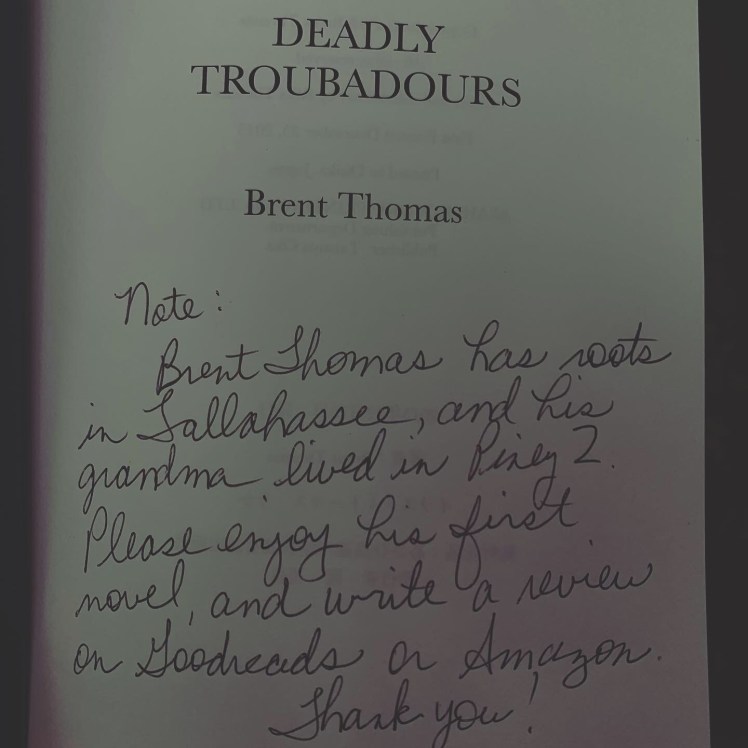 DEADLY
TROUBADOURS
Brent Thomas
Note:
Brent Thomas has roots
in Tallahassee, and his
grandma lived in Piney Z.
Please enjoy his first
novel, and write a review
on Goodreads or Amazon.
Thank you!